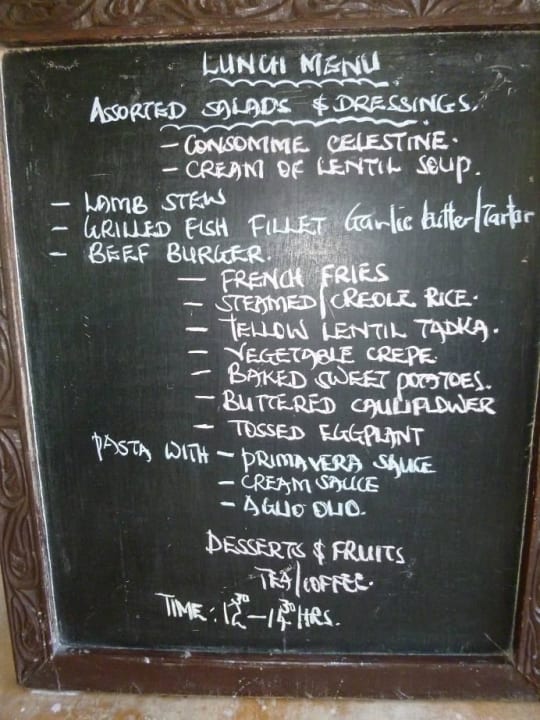 LUNCH MENU
ASSORTED SALADS & DRESSINGS.
- CONSOMME CELESTINE.
- CREAM OF LENTIL SOUP.
- LAMB STEW
- GRILLED FISH FILLET Garlic butter/Tartar
- BEEF BURGER.
- FRENCH FRIES
- STEAMED/CREOLE RICE.
- YELLOW LENTIL TADKA.
- VEGETABLE CREPE.
- BAKED SWEET POTATOES.
- BUTTERED CAULIFLOWER
- TOSSED EGGPLANT
PASTA WITH - PRIMAVERA SAUCE
- CREAM SAUCE
- AGLIO OLIO.
DESSERTS & FRUITS
TEA/COFFEE.
TIME: 12³⁰ - 14³⁰ HRS.